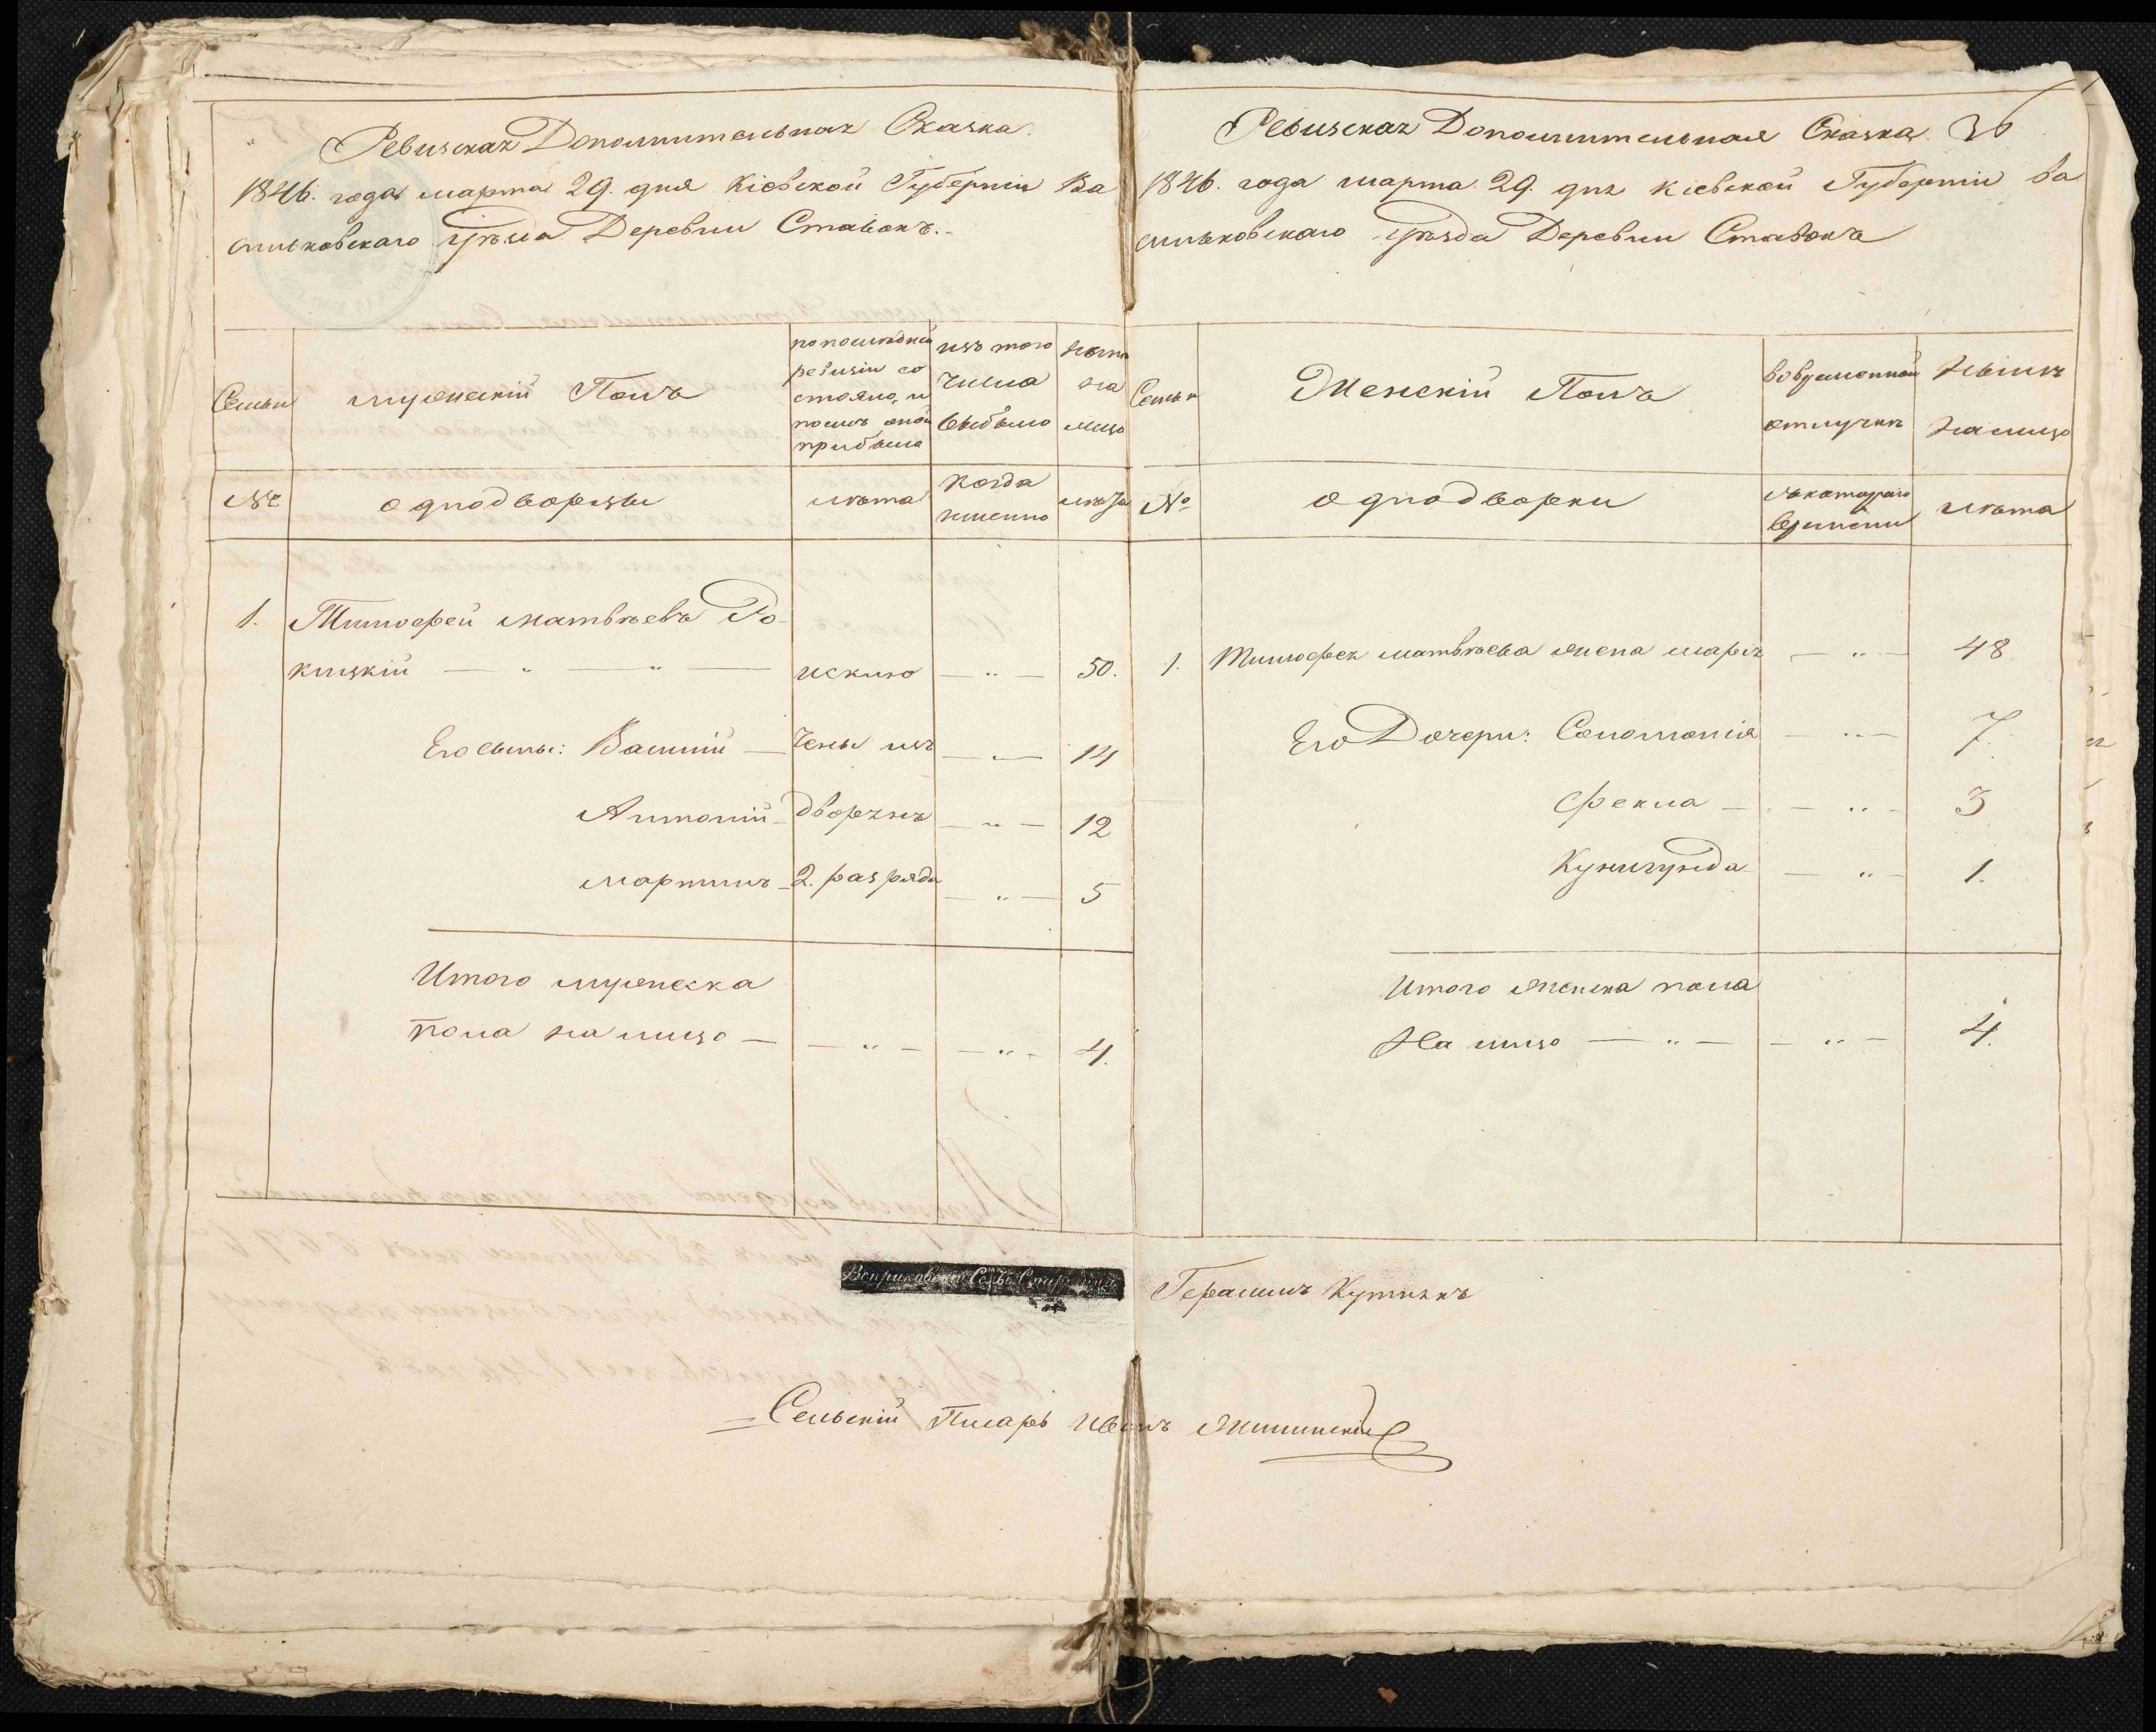 Ревизская Дополнительная Сказка.
1846. года марта 29. дня Кіевской Губерніи Ва
сильковскаго уѣзда Деревни Ставокъ.
Семьи
мужескій Полъ
по послѣдней
ревизіи со
стояло, и
послѣ оной
прибыло
изъ того
числа
выбыло
нынѣ
на
лицо
№
однодворцы
лѣта
когда
именно
лѣта
1. Тимофей Матвѣевъ Ро-
кицкій — " — " — исклю — " — 50.
Его сыны: Василій — чены изъ — " — 14
Антоній — дворянъ — " — 12
Мартинъ — 2. разряда — " — 5
Итого мужеска
пола на лицо — — " — — " — 4.
Ревизская Дополнительная Сказка. 36
1846. года марта 29. дня Кіевской Губерніи Ва
сильковскаго уѣзда Деревни Ставокъ
Семьи
Женскій Полъ
во временной
отлучкѣ
Нынѣ
на лицо
№
однодворки
съ котораго
времени
лѣта
1. Тимофея Матвѣева жена Марія — " — 48
Его Дочери: Соломонія — " — 7.
Фекла — " — 3
Кунигунда — " — 1.
Итого женска пола
На лицо — " — — " — 4.
Веприковскій Сельск. Старшина Герасимъ Кутнякъ
Сельскій Писарь Иванъ